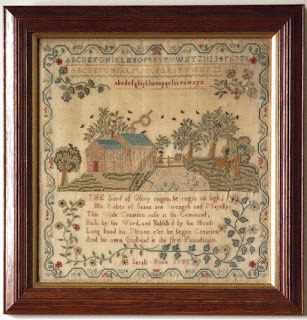 ABCDEFGHIKLMNOPQRSTUVWXYZ1234567
abcdefghijklmnopqrstuvwxyz
THE Lord of Glory reigns, he reigns on high
His Robes of State are Strength and Majesty
This Wide Creation rose at his Command,
Built by his Word, and Establish'd by his Hand
Long stood his Throne e'er he began Creation,
And his own Godhead is the firm Foundation.
Sarah